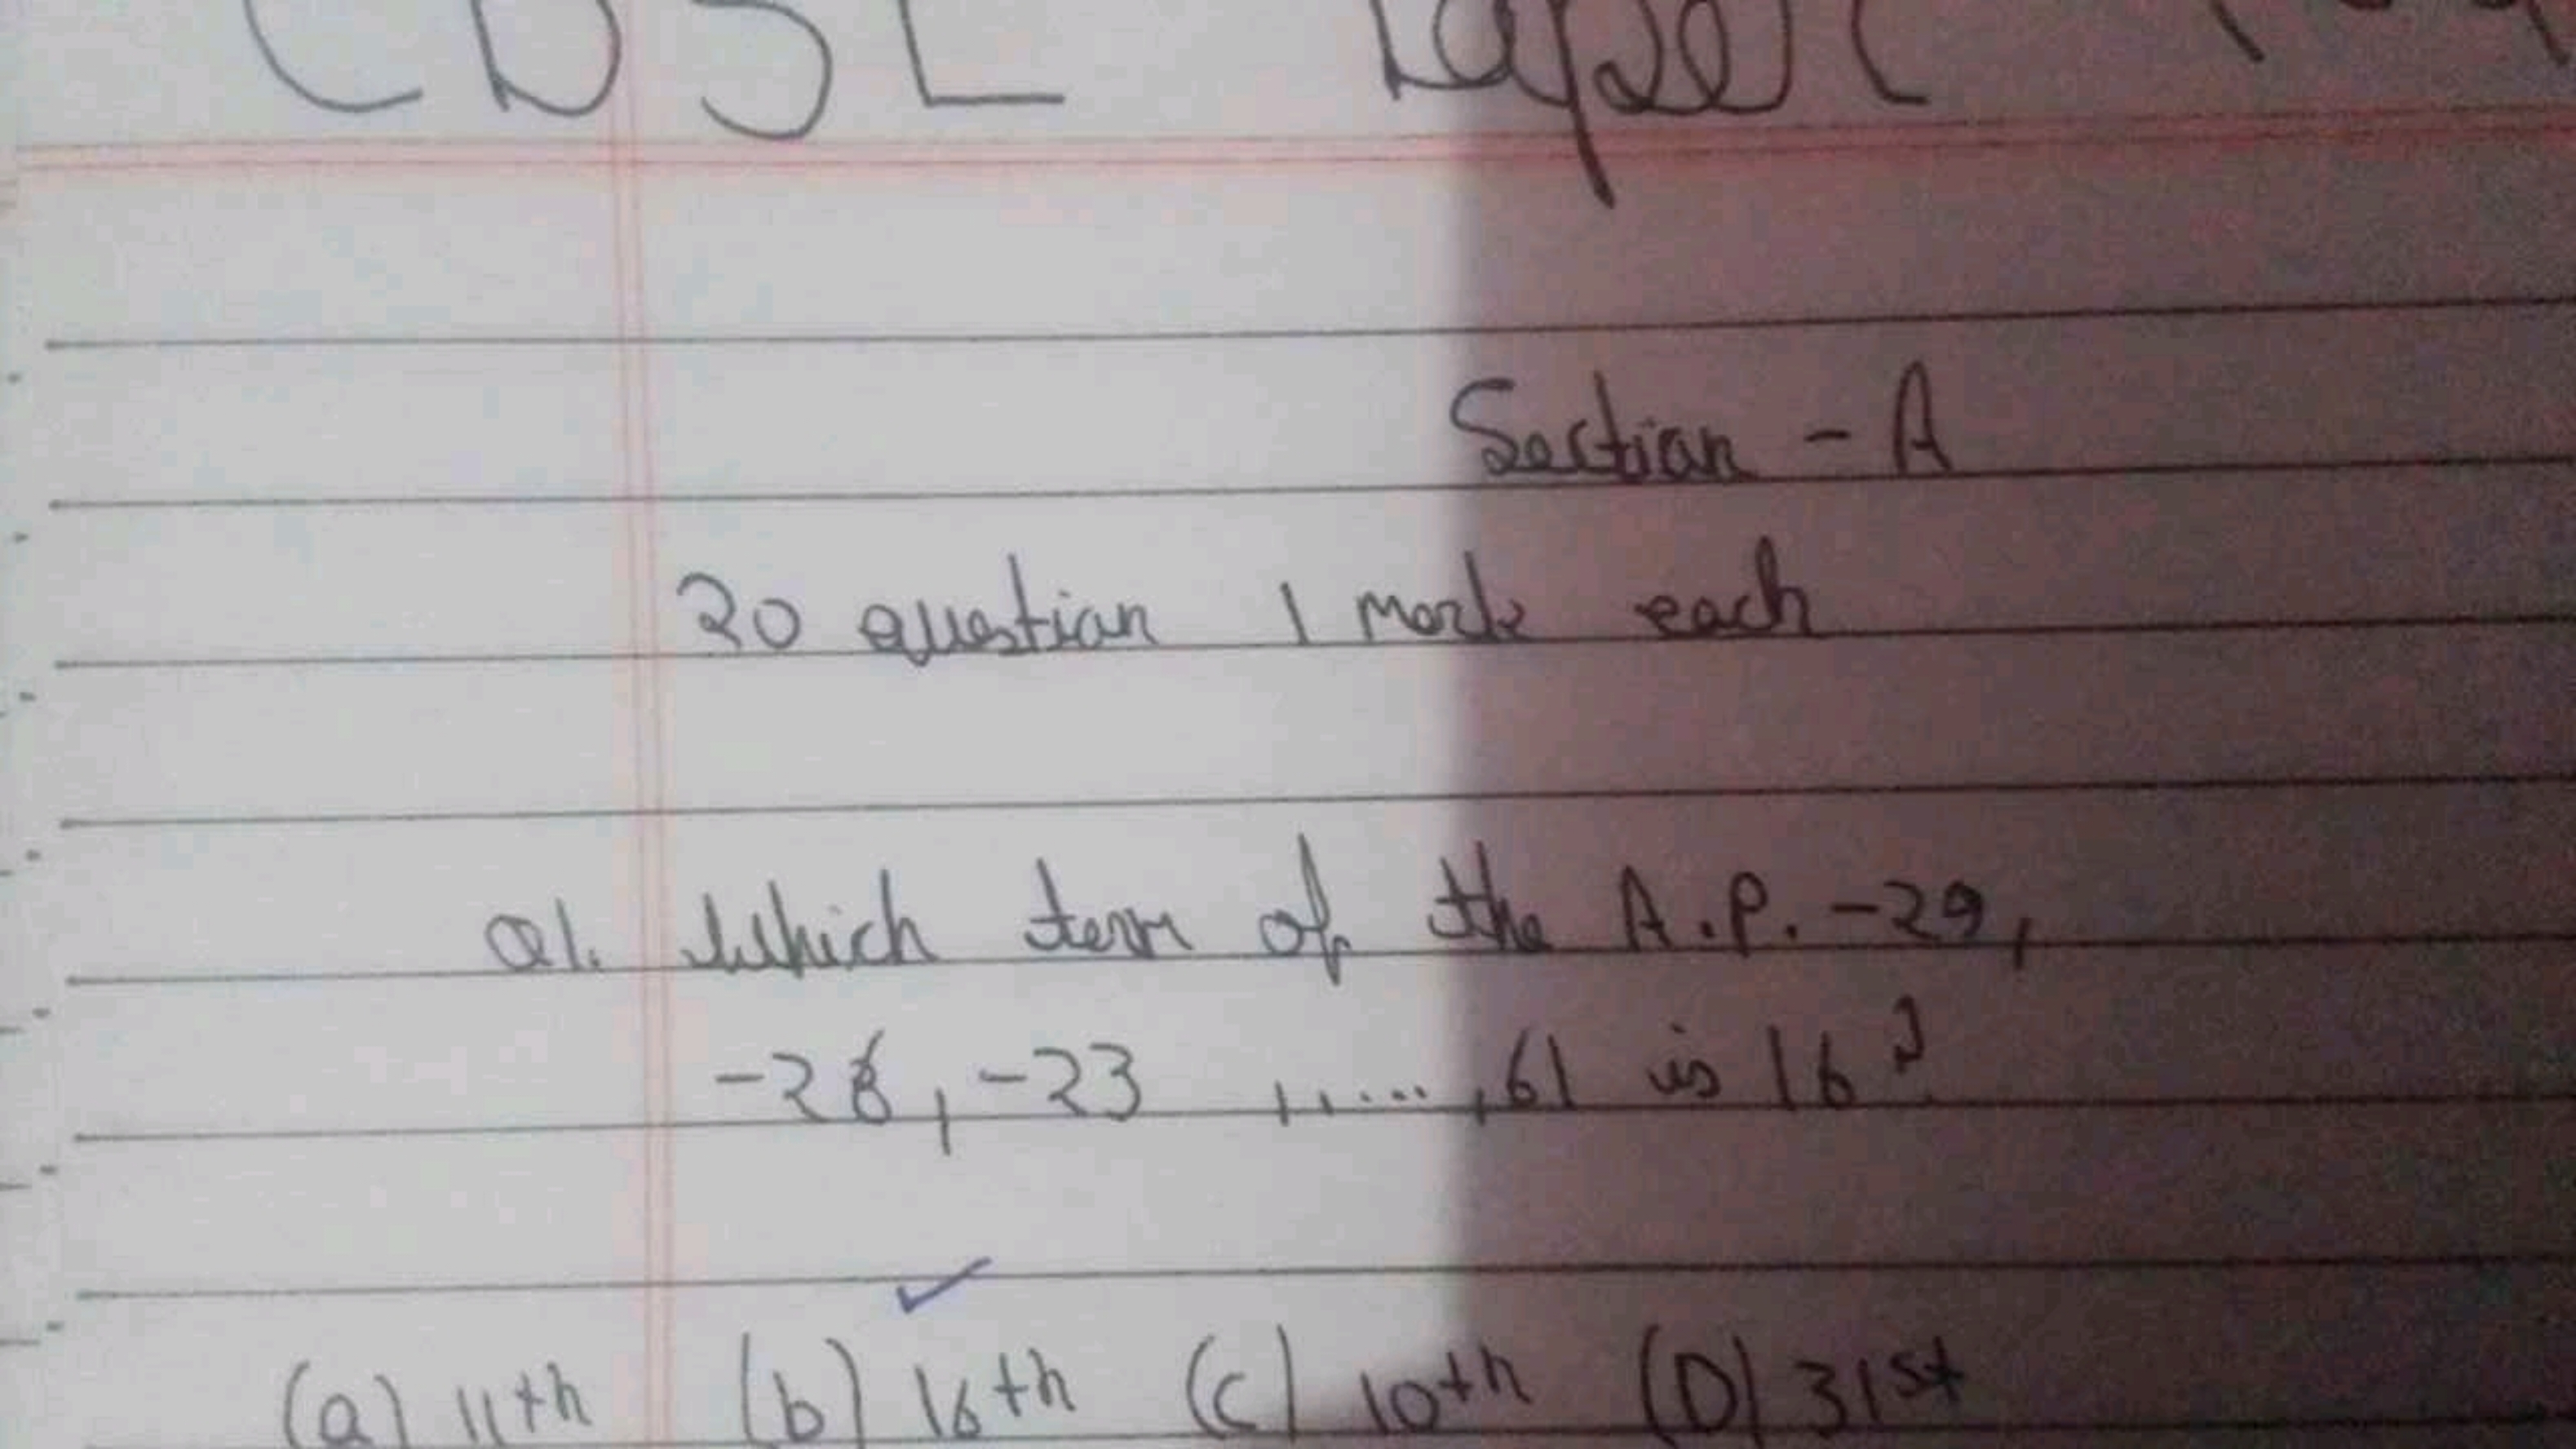 CBSE Paper
Section - A
20 question 1 mark each
Q1. Which term of the A.P. -29,
-26, -23 ,,....,61 is 16?
(a) 11th (b) 16th (c) 10th (D) 31st